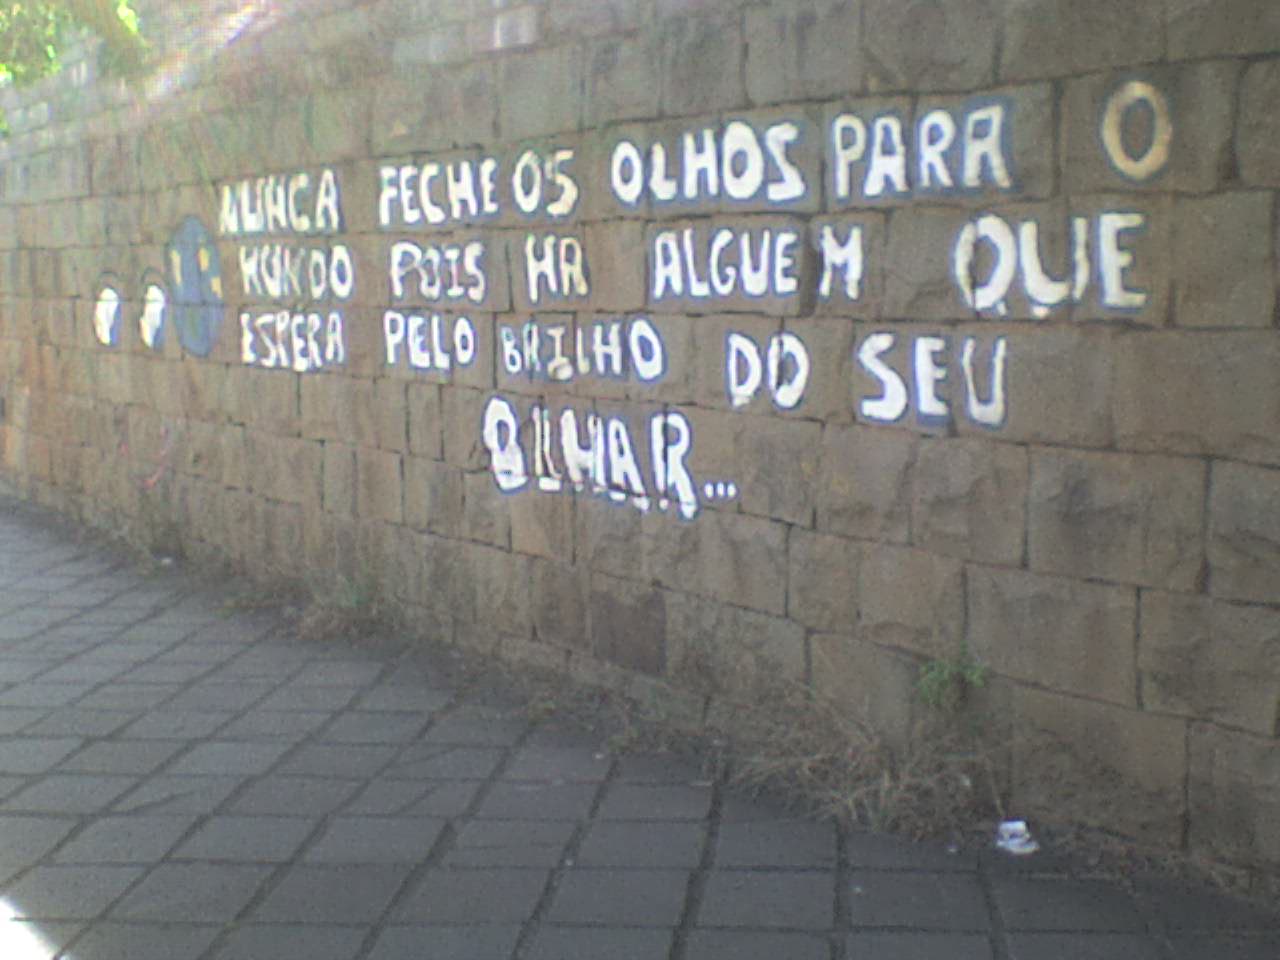 NUNCA FECHE OS OLHOS PARA O
MUNDO POIS HA ALGUEM QUE
ESPERA PELO BRILHO DO SEU
OLHAR...